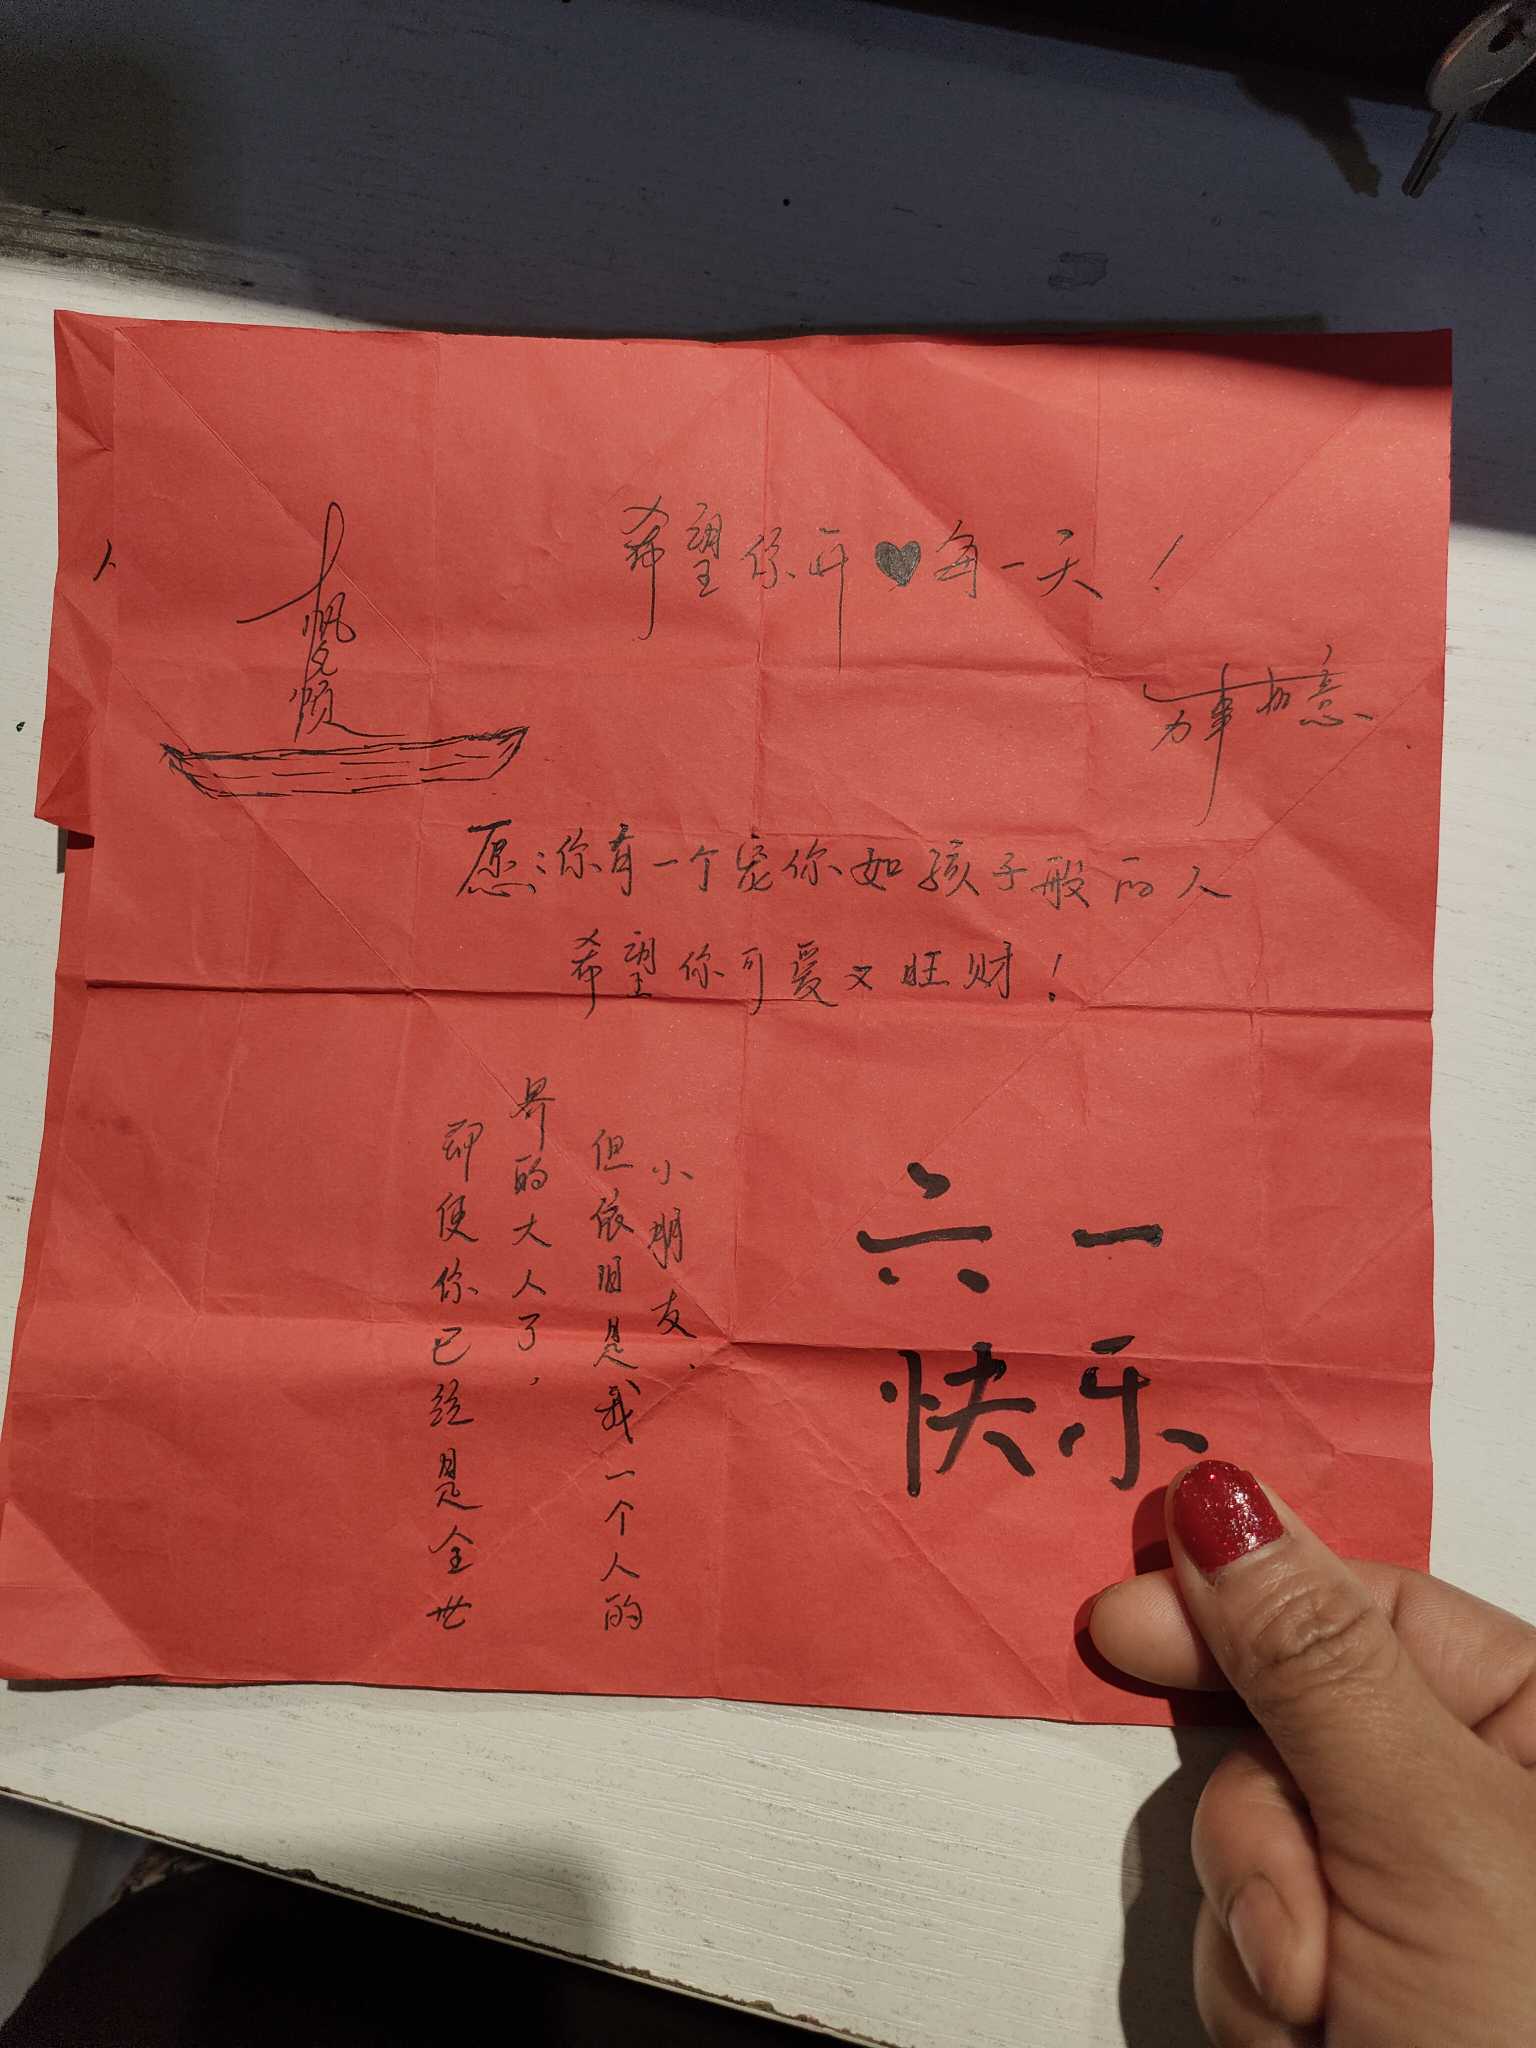 希望你开♥每一天！
一帆风顺
万事如意
愿：你有一个宠你如孩子般的人
希望你可爱又旺财！
即使你已经是全世
界的大人了，
但依旧是我一个人的
小朋友、
六一
快乐